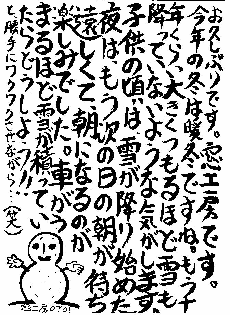 お久しぶりです。窓工房です。
今年の冬は暖冬ですね。もう十
年くらい、大きくつもるほど雪も
降っていないような気がします。
子供の頃は、雪が降り始めた
夜はもう次の日の朝が待ち
遠しくて、朝になるのが
楽しみでした。車がう
まるほど雪が積ってい
たらどうしよっ!!
と勝手にワクワクしながら…(笑)